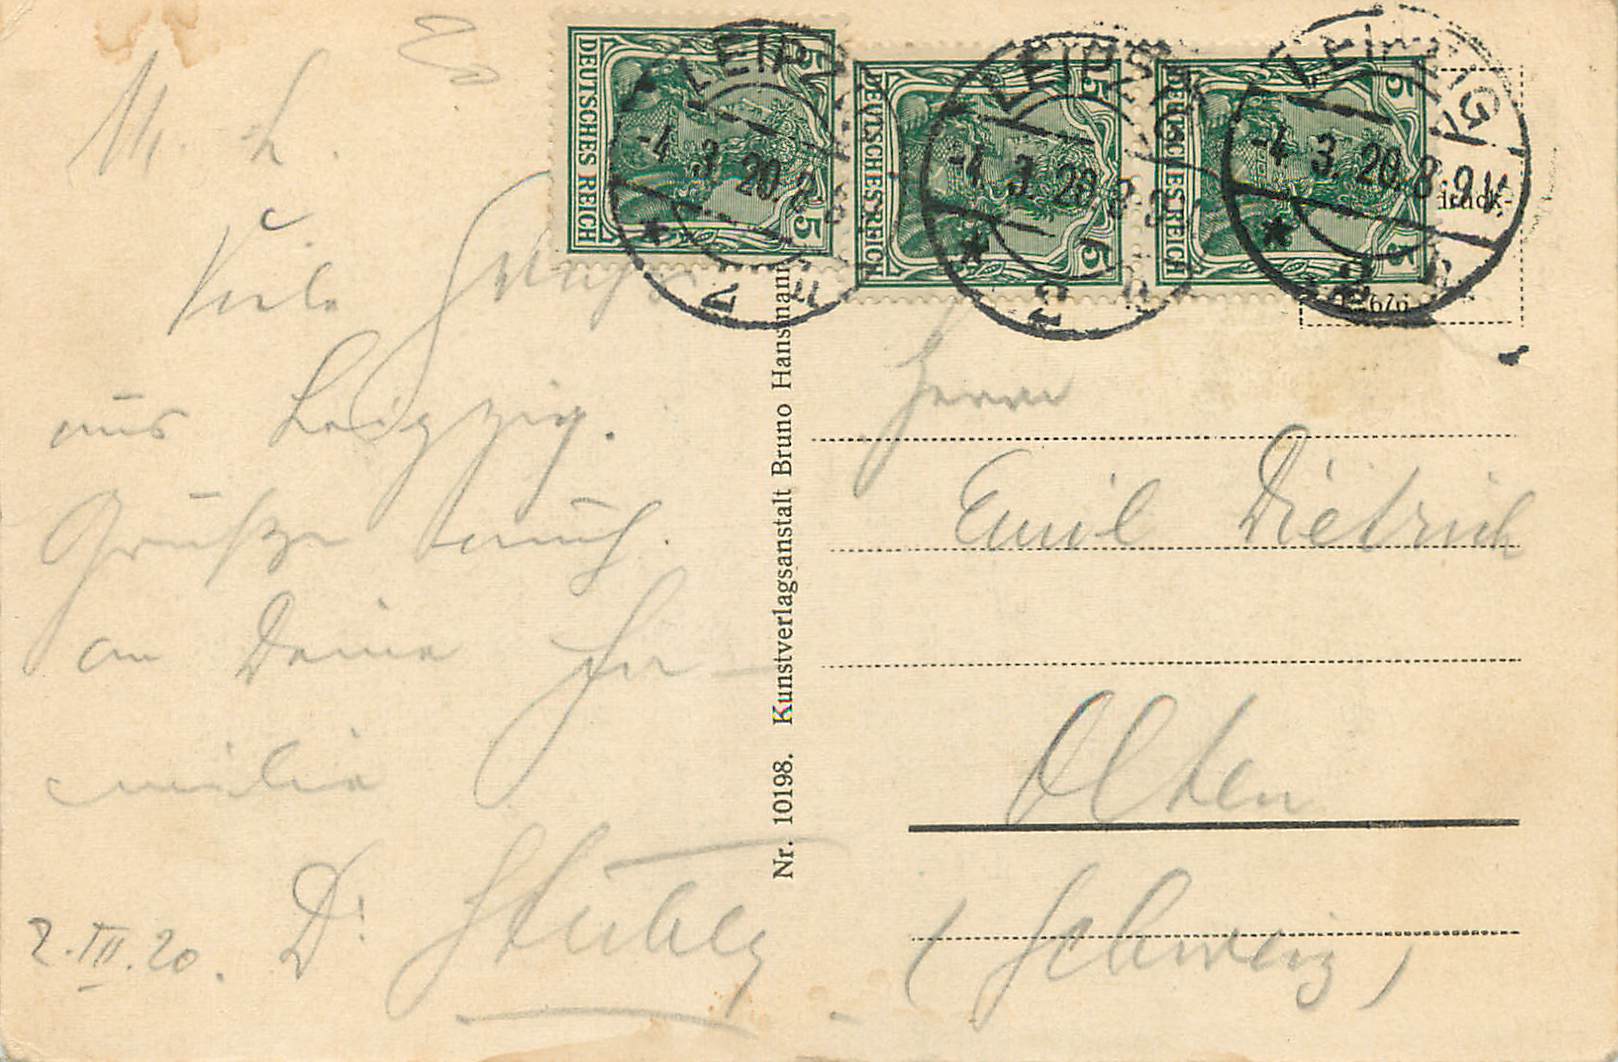 M. L.
Viele Grüsse
aus Leipzig.
Grüsze auch
an Deine Fa-
milie
2.III.20. Dr
Nr. 10198. Kunstverlagsanstalt Bruno Hansmann
DEUTSCHES REICH 5 5
DEUTSCHES REICH 5 5
DEUTSCHES REICH 5 5
LEIPZIG
-4.3.20.8-9
LEIPZIG
-4.3.20.8-9
LEIPZIG
-4.3.20.8-9V.
druck-
Herrn
Emil Dietrich
Olten
(Schweiz)